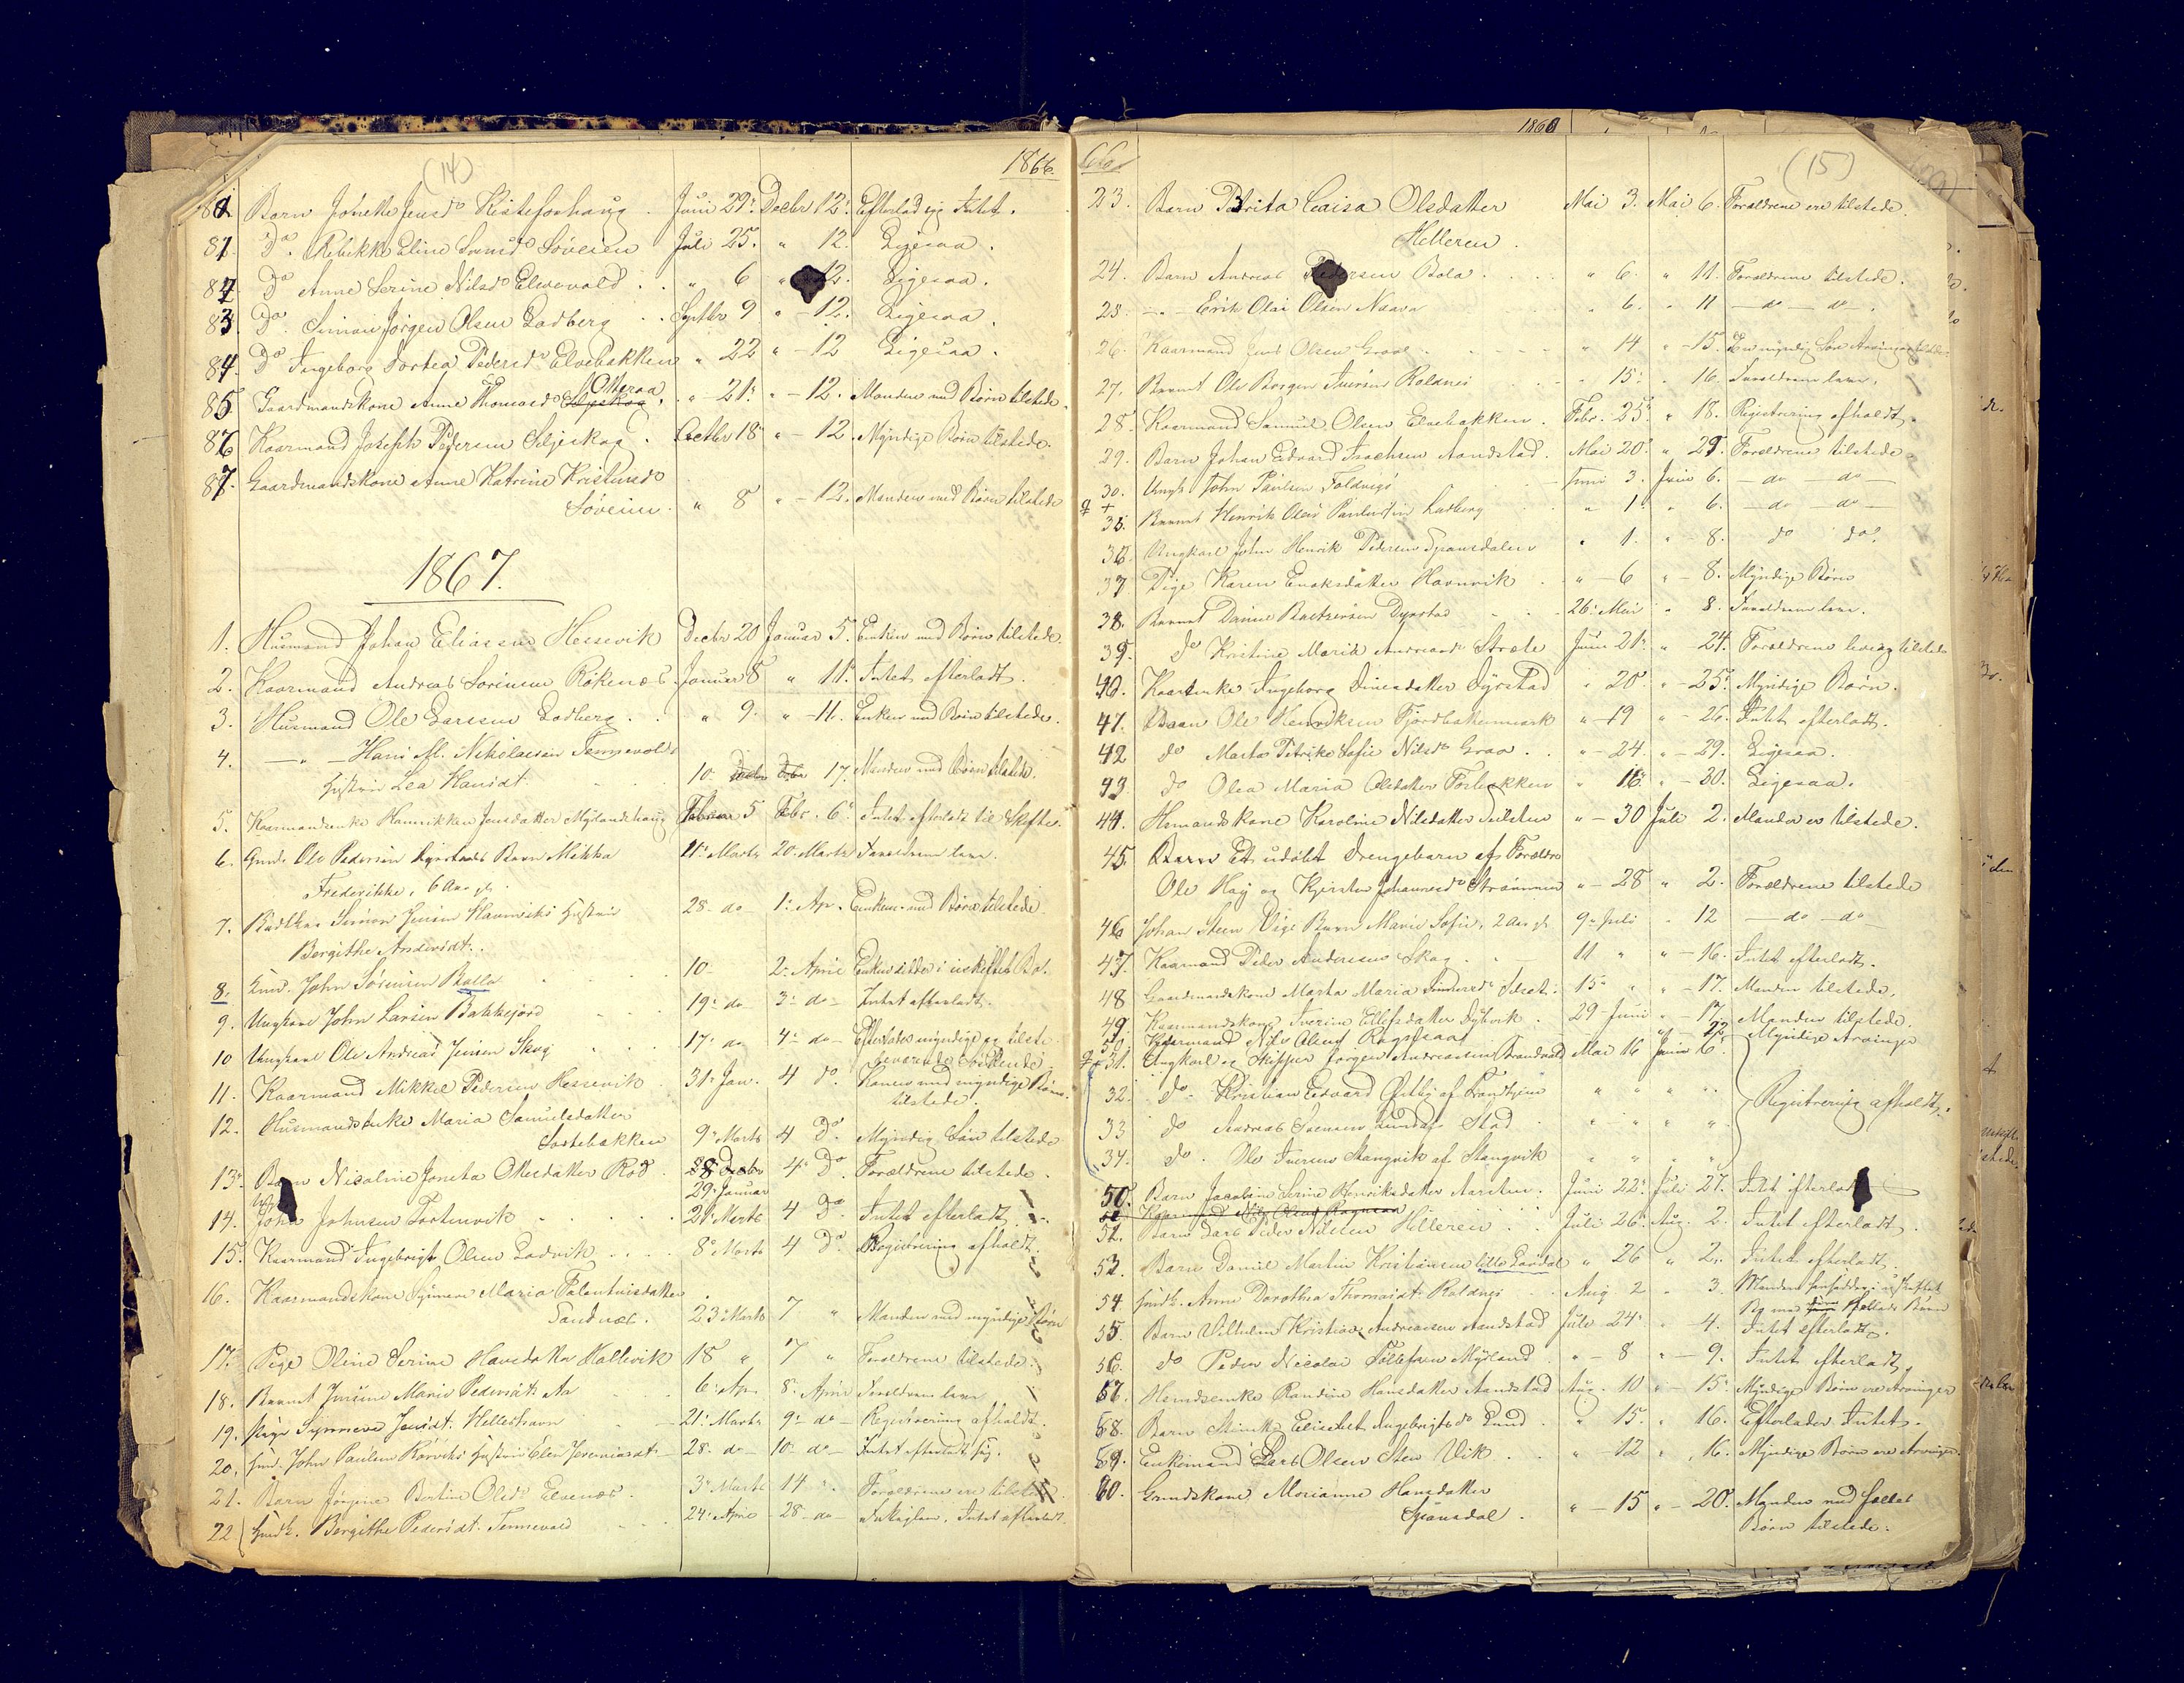 (14)
1866.
80. Barn Jonette Jensdr Kisteforhaug. Juni 29. Decbr 12. Efterlod sig Intet.
81. Do. Rebekke Eline Sørensdr Søveien Juli 25. " 12. Ligesaa.
82. Do Anne Serine Nilsdr Elvevold " 6 " 12. Ligesaa.
83. Do. Simon Jørgen Olsen Ladberg Septbr 9 " - 12. Ligesaa.
84. Do Ingeborg Dortea Pedersdr Elvebakken " 22 " - 12 Ligesaa.
85. Gaardmandskone Anne Thomasdr Otteraa. " - 21. " - 12. Manden med Børn tilstede.
86. Kaarmand Joseph Pedersen Seljeskog. Octbr 18 " - 12. Myndige Børn tilstede.
87. Gaardmandskone Anne Katrine Kristensdr
Søveien. " 8 " - 12. Manden med Børn tilstede
1867.
1. Husmand Johan Eliassen Hessevik Decbr 20 Januar 5. Enken med Børn tilstede.
2. Kaarmand Andreas Sørensen Røkenes. Januar 8 " 11. Intet efterladt.
3. Husmand Ole Larssen Ladberg. " 9. " - 11. Enken med Børn tilstede.
4. - " - Hans M. Nikolaisen Tennevolds
Hustru Lea Hansdt. 10. 17. Manden med Børn tilstede.
5. Kaarmandsenke Henrikke Jensdatter Mylandshaug Februar 5 Febr. 6. Intet efterladt til Skifte.
6. Gmd. Ole Pedersen Dyrstads Barn Mekka 11. Marts 20. Marts Forældrene leve.
Frederikke, 6 Aar gl.
7. Simon Jensen Havnviks Hustru 28. do 1. Apr. Enken med Børn tilstede
Bergithe Andersdt.
8. Gmd. John Sørensen Balla 10 - 2. April Enken sidder i uskiftet Bo.
9. Ungkarl John Larsen Bakkejord 19. do 3. do - Intet efterladt.
10 Ungkarl Ole Andreas Jensen Skog 17. do 4. do - Efterlader myndige og tilste-
deværende Sødskende
11. Kaarmand Mikkel Pedersen Hessevik 31. Jan. 4 do. Konen med myndige Børn
tilstede.
12. Husmandsenke Maria Samuelsdatter
Sortebakken 9. Marts 4 Do. Myndig Søn tilstede
13. Barn Nicoline Jonetha Olsdatter Rød 29. Januar 4. Do. Forældrene tilstede.
14. John Johnsen Tortenvik 21. Marts 4 Do. Intet efterladt.
15. Kaarmand Ingebrigt Olsen Ladvik 8. Marts 4 Do. Registrering afholdt.
16. Kaarmandskone Synneve Maria Falentinsdatter
Sandnes. 23. Marts 7 " Manden med myndige Børn
17. Pige Oline Serine Hansdatter Hallevik 18 " 7 " Forældrene tilstede.
18. Barnet Jensine Marie Pedersdt. Aa 6. Apr. 8. April Forældrene leve
19. Pige Synneve Jensdt. Helleshavn 21. Marts 9. do - Registrering afholdt.
20. Gmd. John Paulsen Rørviks Hustru Elen Jeremiasdt. 28. do - 10. do - Intet efterladt sig.
21. Barn Jørgine Bertine Olsdr Elvenes. 3. Marts 14 ". Forældrene ere tilstede.
22 Gmdk. Bergithe Pedersdt. Tennevold 24. April 28. do - Intet efterladt.
1866
66
(15)
23. Barn Brita Caisa Olsdatter Mai 3. Mai 6. Forældrene ere tilstede.
Helleren.
24. Barn Andreas Pedersen Bola. " 6. " 11. Forældrene tilstede.
25. - " - Erik Olai Olsen Naava " 6. " 11 - do - do -.
26. Kaarmand Jens Olsen Graae " 14 " - 15. En myndig Søn Arving
27. Barnet Ole Borgen Iversen Roldnes " 15. " 16. Forældrene leve.
28. Kaarmand Samuel Olsen Elvebakken. Febr. 25. " 18. Registrering afholdt.
29. Barn Johan Edvard Isachsen Aandstad. Mai 20. " 25. Forældrene tilstede
30. Ungk. John Paulsen Foldvigs Juni 3. Juni 6. - do - do -
35. Barnet Henrik Olai Paulussen Ladberg " 1. " 6. - do - do -
36. Ungkarl John Henrik Pedersen Spansdalen " 1. " - 8. do do.
37 Pige Karen Enoksdatter Havnvik " - 6 " - 8. Myndige Børn
38. Barnet Daniel Baltzersen Dyrstad 26. Mai " 8. Forældrene leve.
39. do Kristine Maria Andreasdr Stræte Juni 21. " - 24. Forældrene leve og tilstede
40. Kaarenke Ingeborg Dinesdatter Dyrstad " 20. " - 25. Myndige Børn.
41. Barn Ole Henriksen Fjordbotnmark " - 19 " - 26. Intet efterladt.
42 do Marta Petrike Sofie Nilsdr Graae. " - 24. " - 29. Ligesaa.
43. do Olea Maria Olsdatter Forbakken " 16. " - 30. Ligesaa.
44. Hmandskone Karoline Nilsdatter " - 30 Juli 2. Manden er tilstede.
45. Barn Et udøbt Drengebarn af Forældre
Ole Høy og Kjersten Johannesdr Strømmen " - 28 " 2. Forældrene tilstede
46 Johan Steen Viges Barn Marie Sofie, 2 Aar gl. 9. Juli " 12 - do - do
47. Kaarmand Peder Andersen Skog. 11 " " - 16. Intet efterladt.
48 Gaardmandskone Marta Maria Ilset. 15 " " - 17. Manden tilstede.
49. Kaarmandskone Iverine Ellefsdatter Dybvik. 29 Juni " - 17. Manden tilstede.
50. Kaarmand Nils Olsen Rognsaas " - 22. Myndige Arvinger
31. Ungkarl og Skipper Jørgen Andreassen Strandvold Mai 16 Juni 6.
32. do - Kristian Edvard af Trondhjem " " " " Registrering afholdt.
33 do Andreas Stad " " " "
34. do. Ole Iversen Stangvik af Stangvik " " " "
50. Barn Jacobine Serine Henriksdatter Aarsten. Juni 22. Juli 27. Intet efterladt
51. Kaarmand Nils Olsen Rognsaa
52. Barn Lars Peder Nilsen Helleren. Juli 26. Aug. 2. Intet efterladt.
53. Barn Daniel Martin Kristiansen lille Laudal " 26 " 2. Intet efterladt.
54 Gmdk. Anne Dorothea Thomasdt. Roldnes Aug 2 " 3. Manden hensidder i uskiftet
Bo med Fælles Børn
55. Barn Vilhelm Kristian Andreassen Aandstad Juli 24. " 4. Intet efterladt.
56. do Peder Nicolai Tollefsen Myrland " - 8 " - 9. Intet efterladt,
57. Hmdsenke Randine Hansdatter Aandstad Aug. 10 " - 15. Myndige Børn ere Arvinger
58. Barn Elisabet Ingebrigtsdr Lund " 15. " 16. Efterlader Intet.
59. Enkemand Lars Olsen Sten Vik. " - 12 " . 16. Myndige Børn ere Arvinger.
60. Gmandskone Morianne Hansdatter
Spansdal. " - 15 " - 20. Manden med fælles
Børn tilstede.